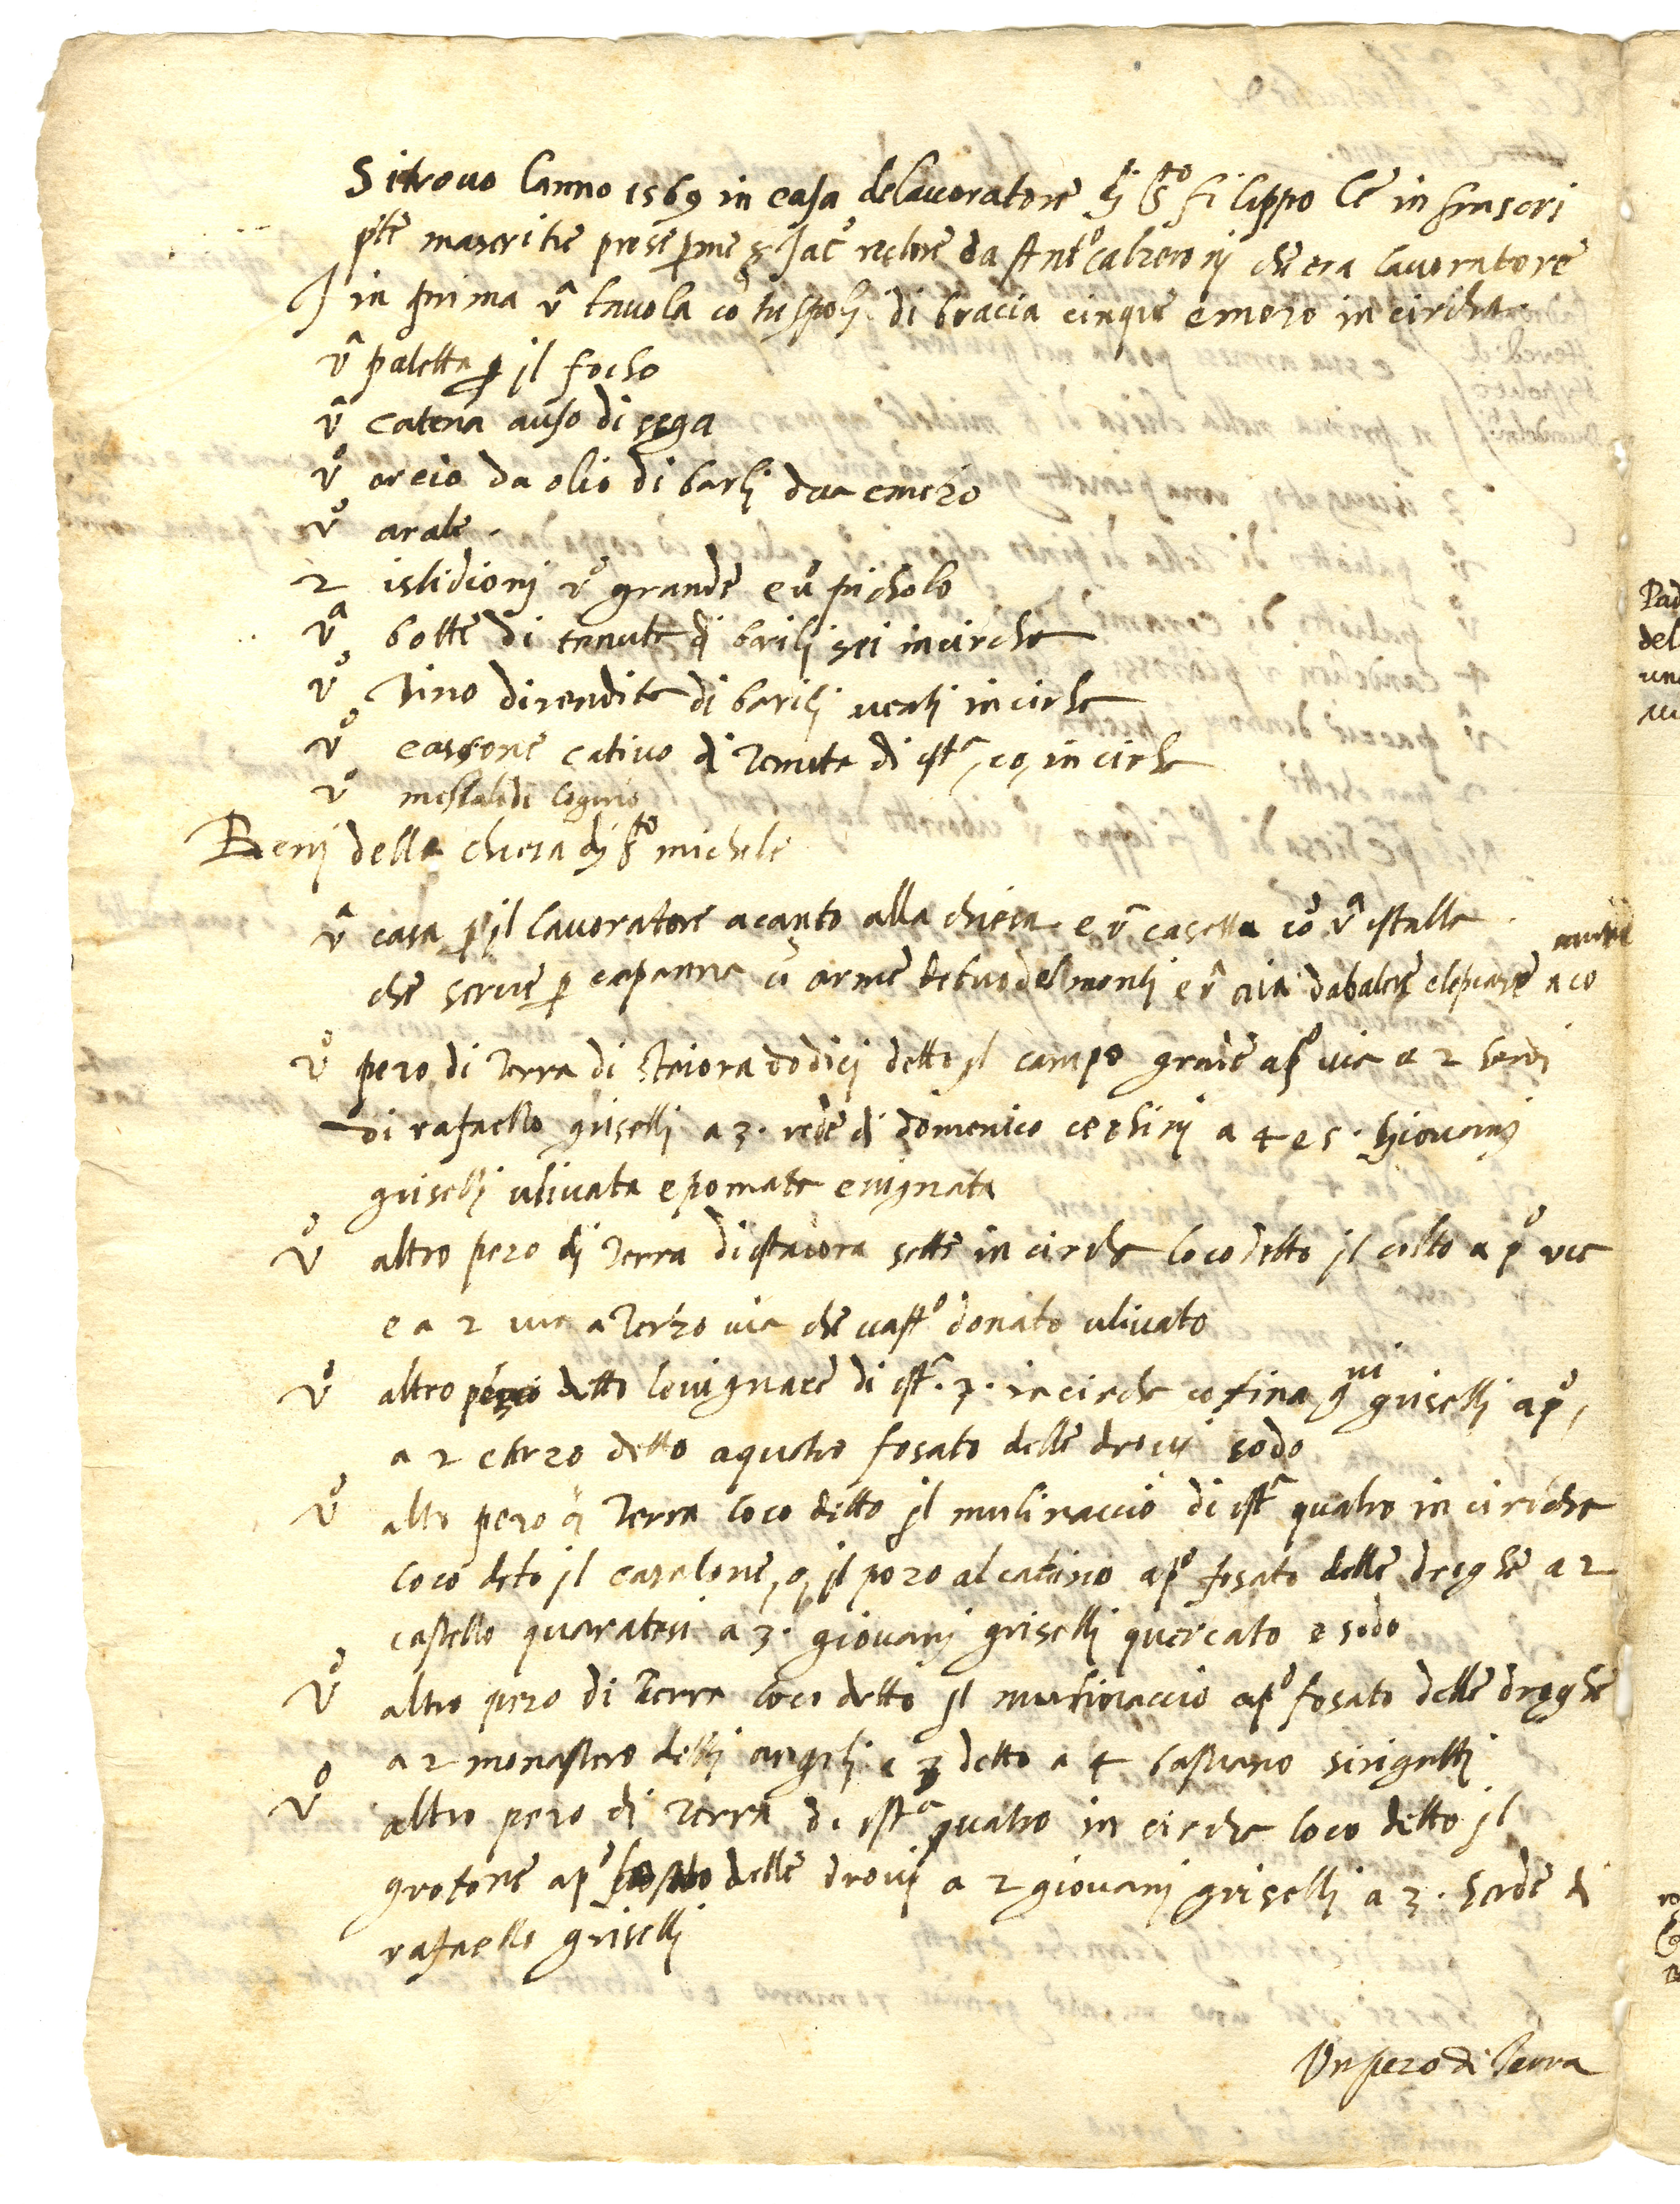 Sitrovo lanno 1569 in casa delavoratore di Sto filippo le infrascri
pte masseritie prese p me s Jaco rectore da Anto calzeronj che era lavoratore
in prima va tavola co tuspoli di bracia cinque emezo in circha
va paletta p il focho
va catena auso di sega
vo orcio da olio di barlj dua emezo
vo arale
2 istidionj vo grande e vo picholo
va botte di tenuta di barilj sei incircha
vo Tino direndita di barilj venti incircha
vo cassone cativo di tenuta di sta 20 in circha
vo mestalde logoro
Benj della chiesa di Sto michele
va casa p il lavoratore acanto alla chiesa e va casetta co va stalla
che serve p capanna co arme delmonti e va aia dabatere elepiazze aco
mune
vo pezo di terra di staiora dodicj detto il campo grade apo via a 2 heredi
di rafaello griselli a 3. rede di domenico cechinj a 4 e 5. giovannj
griselli ulivata epomata evignata
vo altro pezo di terra distaiora sette in circha locodetto il colto a po via
e a 2 via a terzo via che va sto donato ulivato
vo altro pezo detto levignacce di sta. 7. incircha cofina gni griselli apo,
a 2 eterzo detto aquatro fosato delle drove sodo
vo altro pezo di terra loco detto il mulinaccio di sta quatro in circha
loco deto il casalone, o, il pozo alcatino apo fosato delle droghe a 2
castello quaratesi a 3. giovanj griselli quercato e sodo
vo altro pezo di terra loco detto il mulinaccio apo fosato delle droghe
a 2 monastero delli angeli e 3 detto a 4 bastiano sirigatti
vo altro pezo di terra di sta quatro in circha loco detto il
grotone apo fosato delle drovj a 2 giovanj griselli a 3. herde di
rafaello griselli
Un pezo di terra